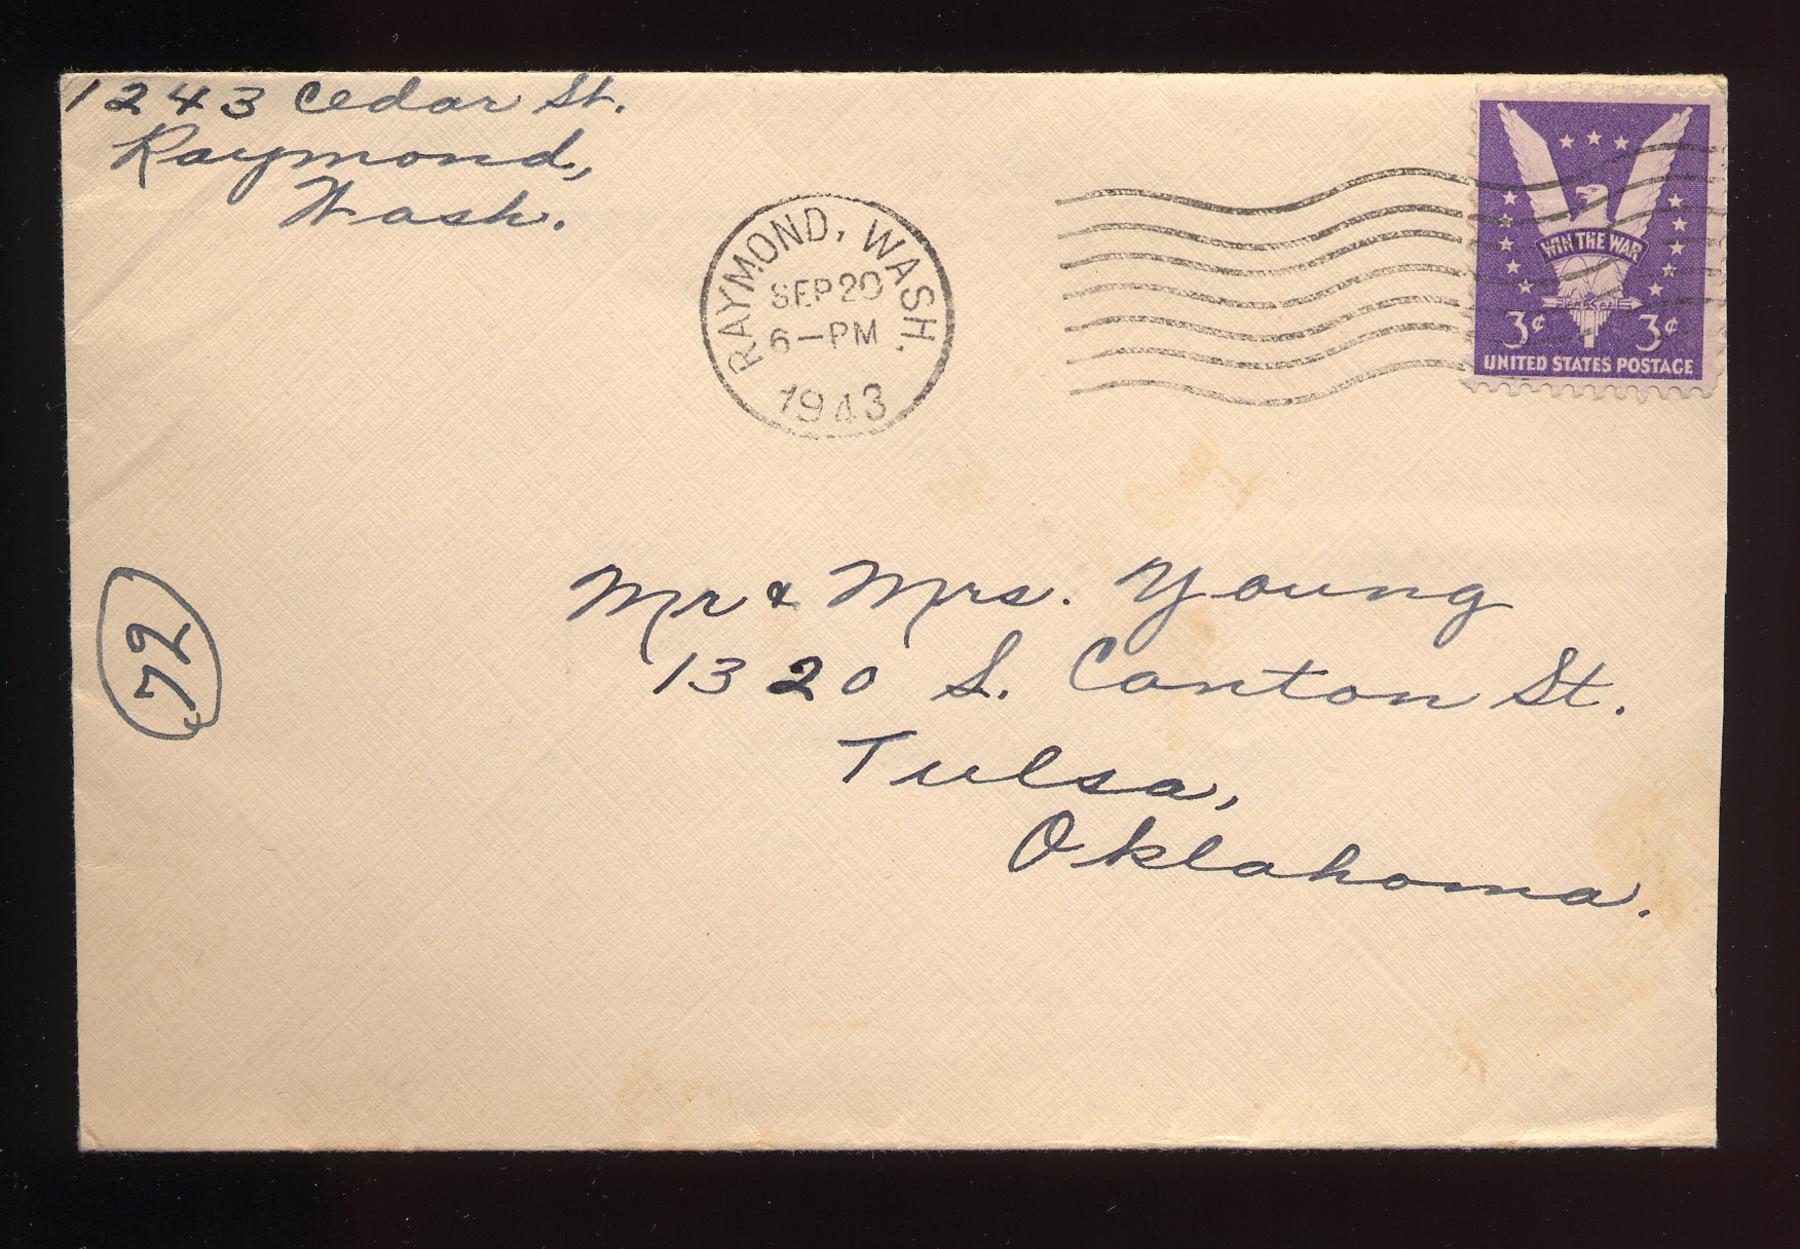 1243 Cedar St.
Raymond,
Wash.
RAYMOND, WASH.
SEP 20
6-PM
1943
WIN THE WAR
3¢ 3¢
UNITED STATES POSTAGE
72
Mr & Mrs. Young
1320 S. Canton St.
Tulsa,
Oklahoma.